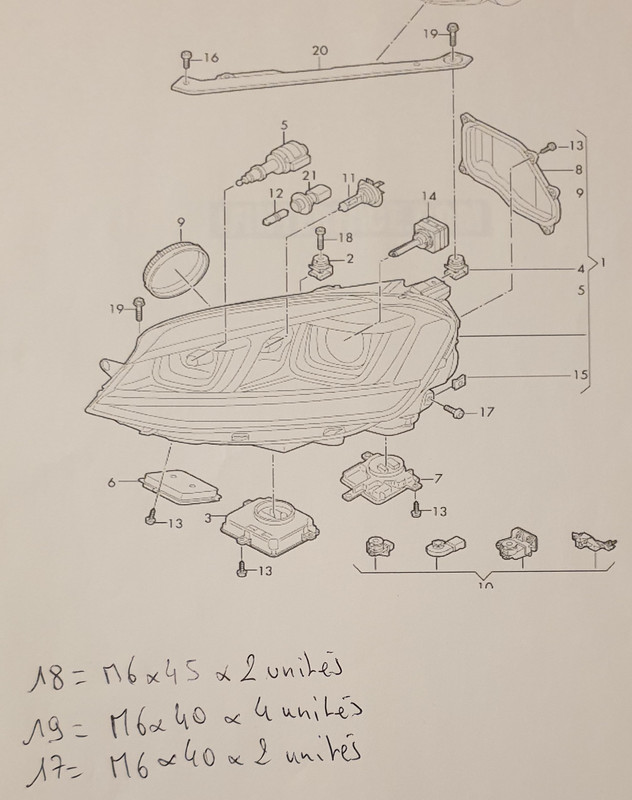 19
20
16
5
13
8
21
12
11
9
14
9
18
2
1
4
5
19
15
17
6
7
3
13
13
13
10
18 = M6 x 45 x 2 unités
19 = M6 x 40 x 4 unités
17 = M6 x 40 x 2 unités